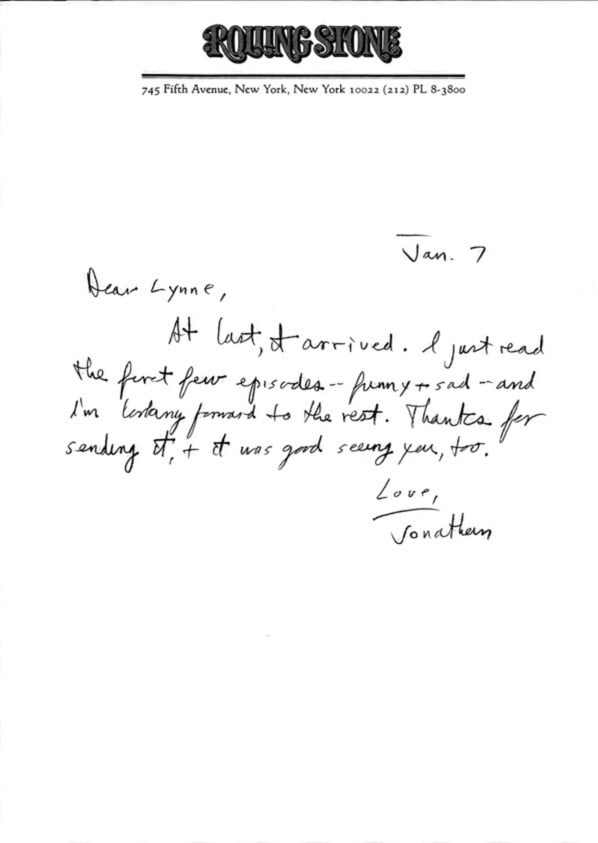 ROLLING STONE
745 Fifth Avenue, New York, New York 10022 (212) PL 8-3800
Jan. 7
Dear Lynne,
At last, it arrived. I just read
the first few episodes -- funny + sad -- and
I'm looking forward to the rest. Thanks for
sending it, + it was good seeing you, too.
Love,
Jonathan